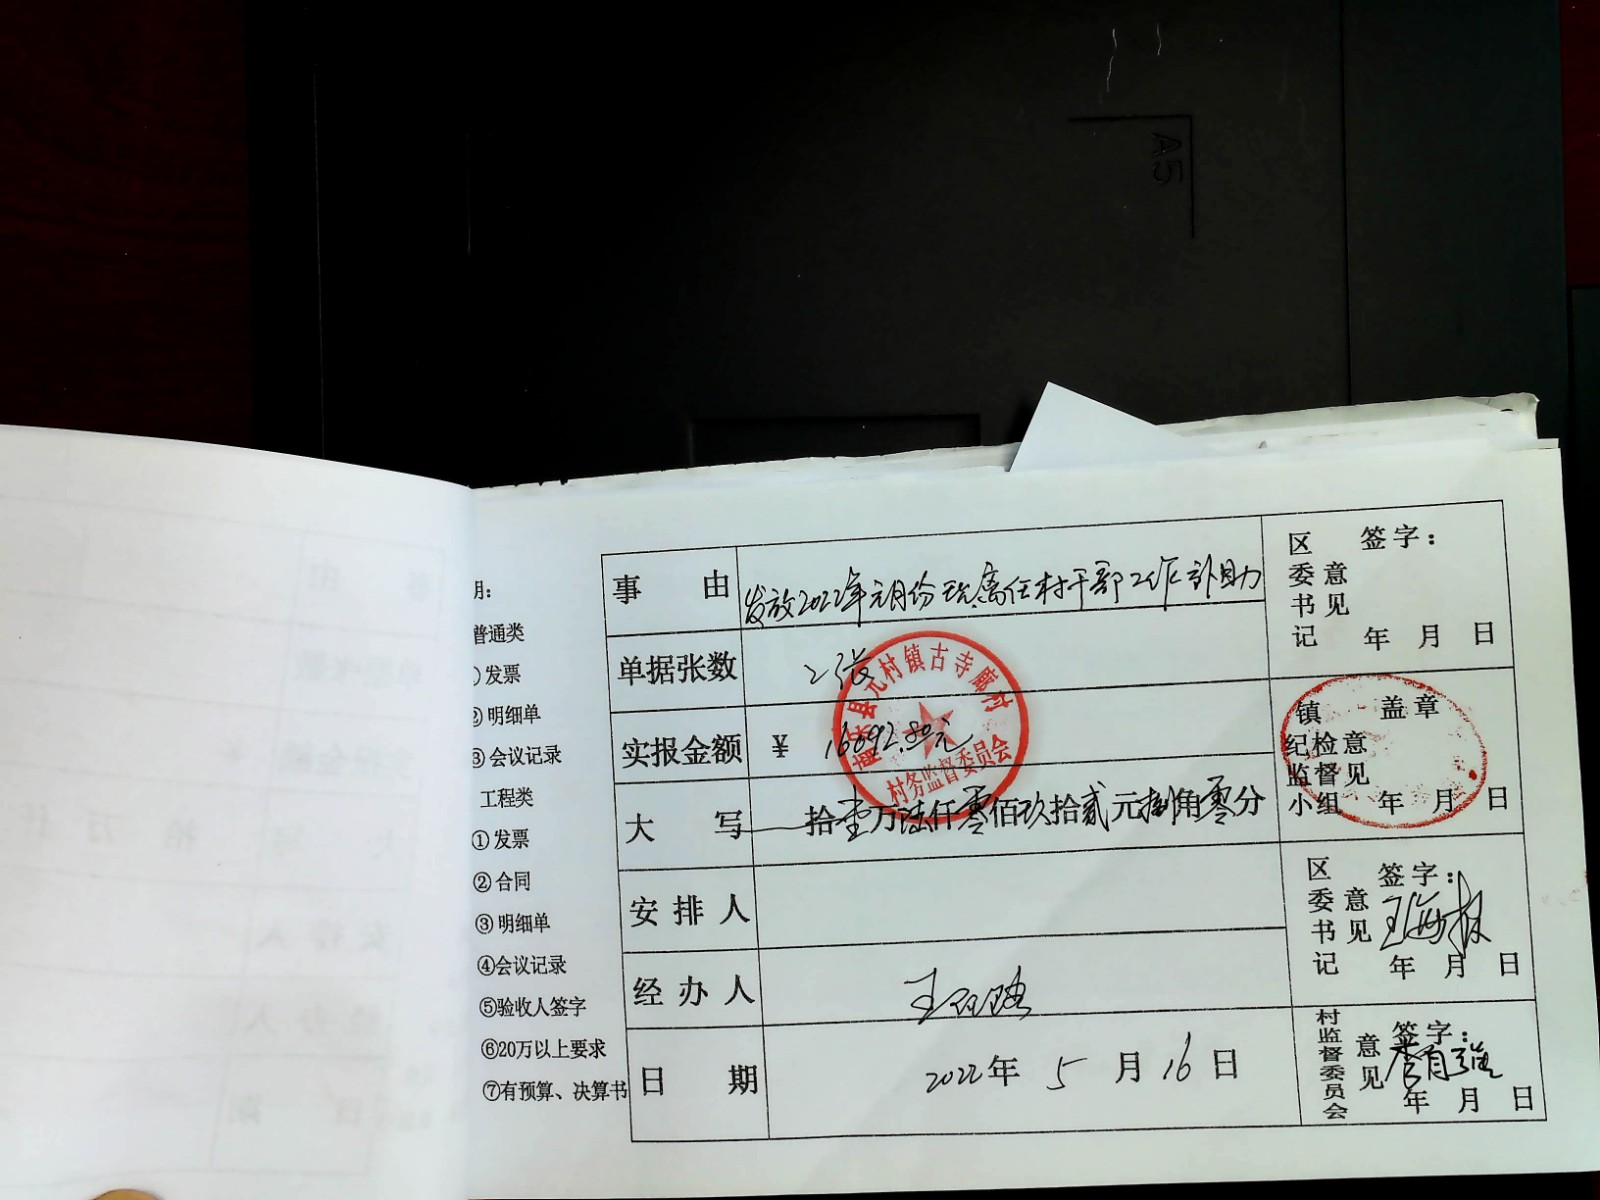 A5
期:
普通类
①发票
②明细单
③会议记录
工程类
①发票
②合同
③明细单
④会议记录
⑤验收人签字
⑥20万以上要求
⑦有预算、决算书
事由 发放2022年元月份现离任村干部工作补助
单据张数 2张
实报金额 ¥ 16092.80元
大写 拾壹万陆仟零佰玖拾贰元捌角零分
安排人
经办人
日期 2022年5月16日
元村镇古寺廊村
村务监督委员会
区委书记意见 签字:
年月日
镇纪检监督小组意见 盖章
年月日
区委书记意见 签字:
年月日
村监督委员会意见 签字:
年月日